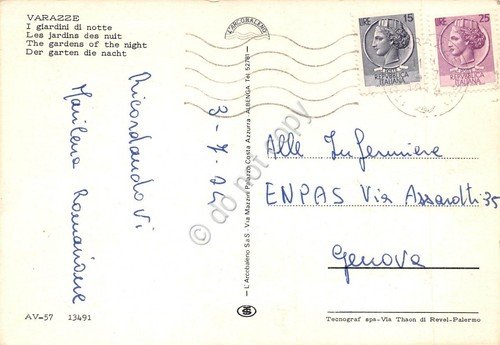 VARAZZE
I giardini di notte
Les jardins des nuit
The gardens of the night
Der garten die nacht
L'ARCOBALENO
LIRE 15
REPUBBLICA
ITALIANA
LIRE 25
REPUBBLICA
ITALIANA
Ricordandovi
Marilena Romairone
3-7-75
L'Arcobaleno S.a.S. Via Mazzini Palazzo Costa Azzurra - ALBENGA Tel. 52781
Alle Infermiere
ENPAS Via Assarotti 35
Genova
do not copy
AV-57 13491
Tecnograf spa-Via Thaon di Revel-Palermo